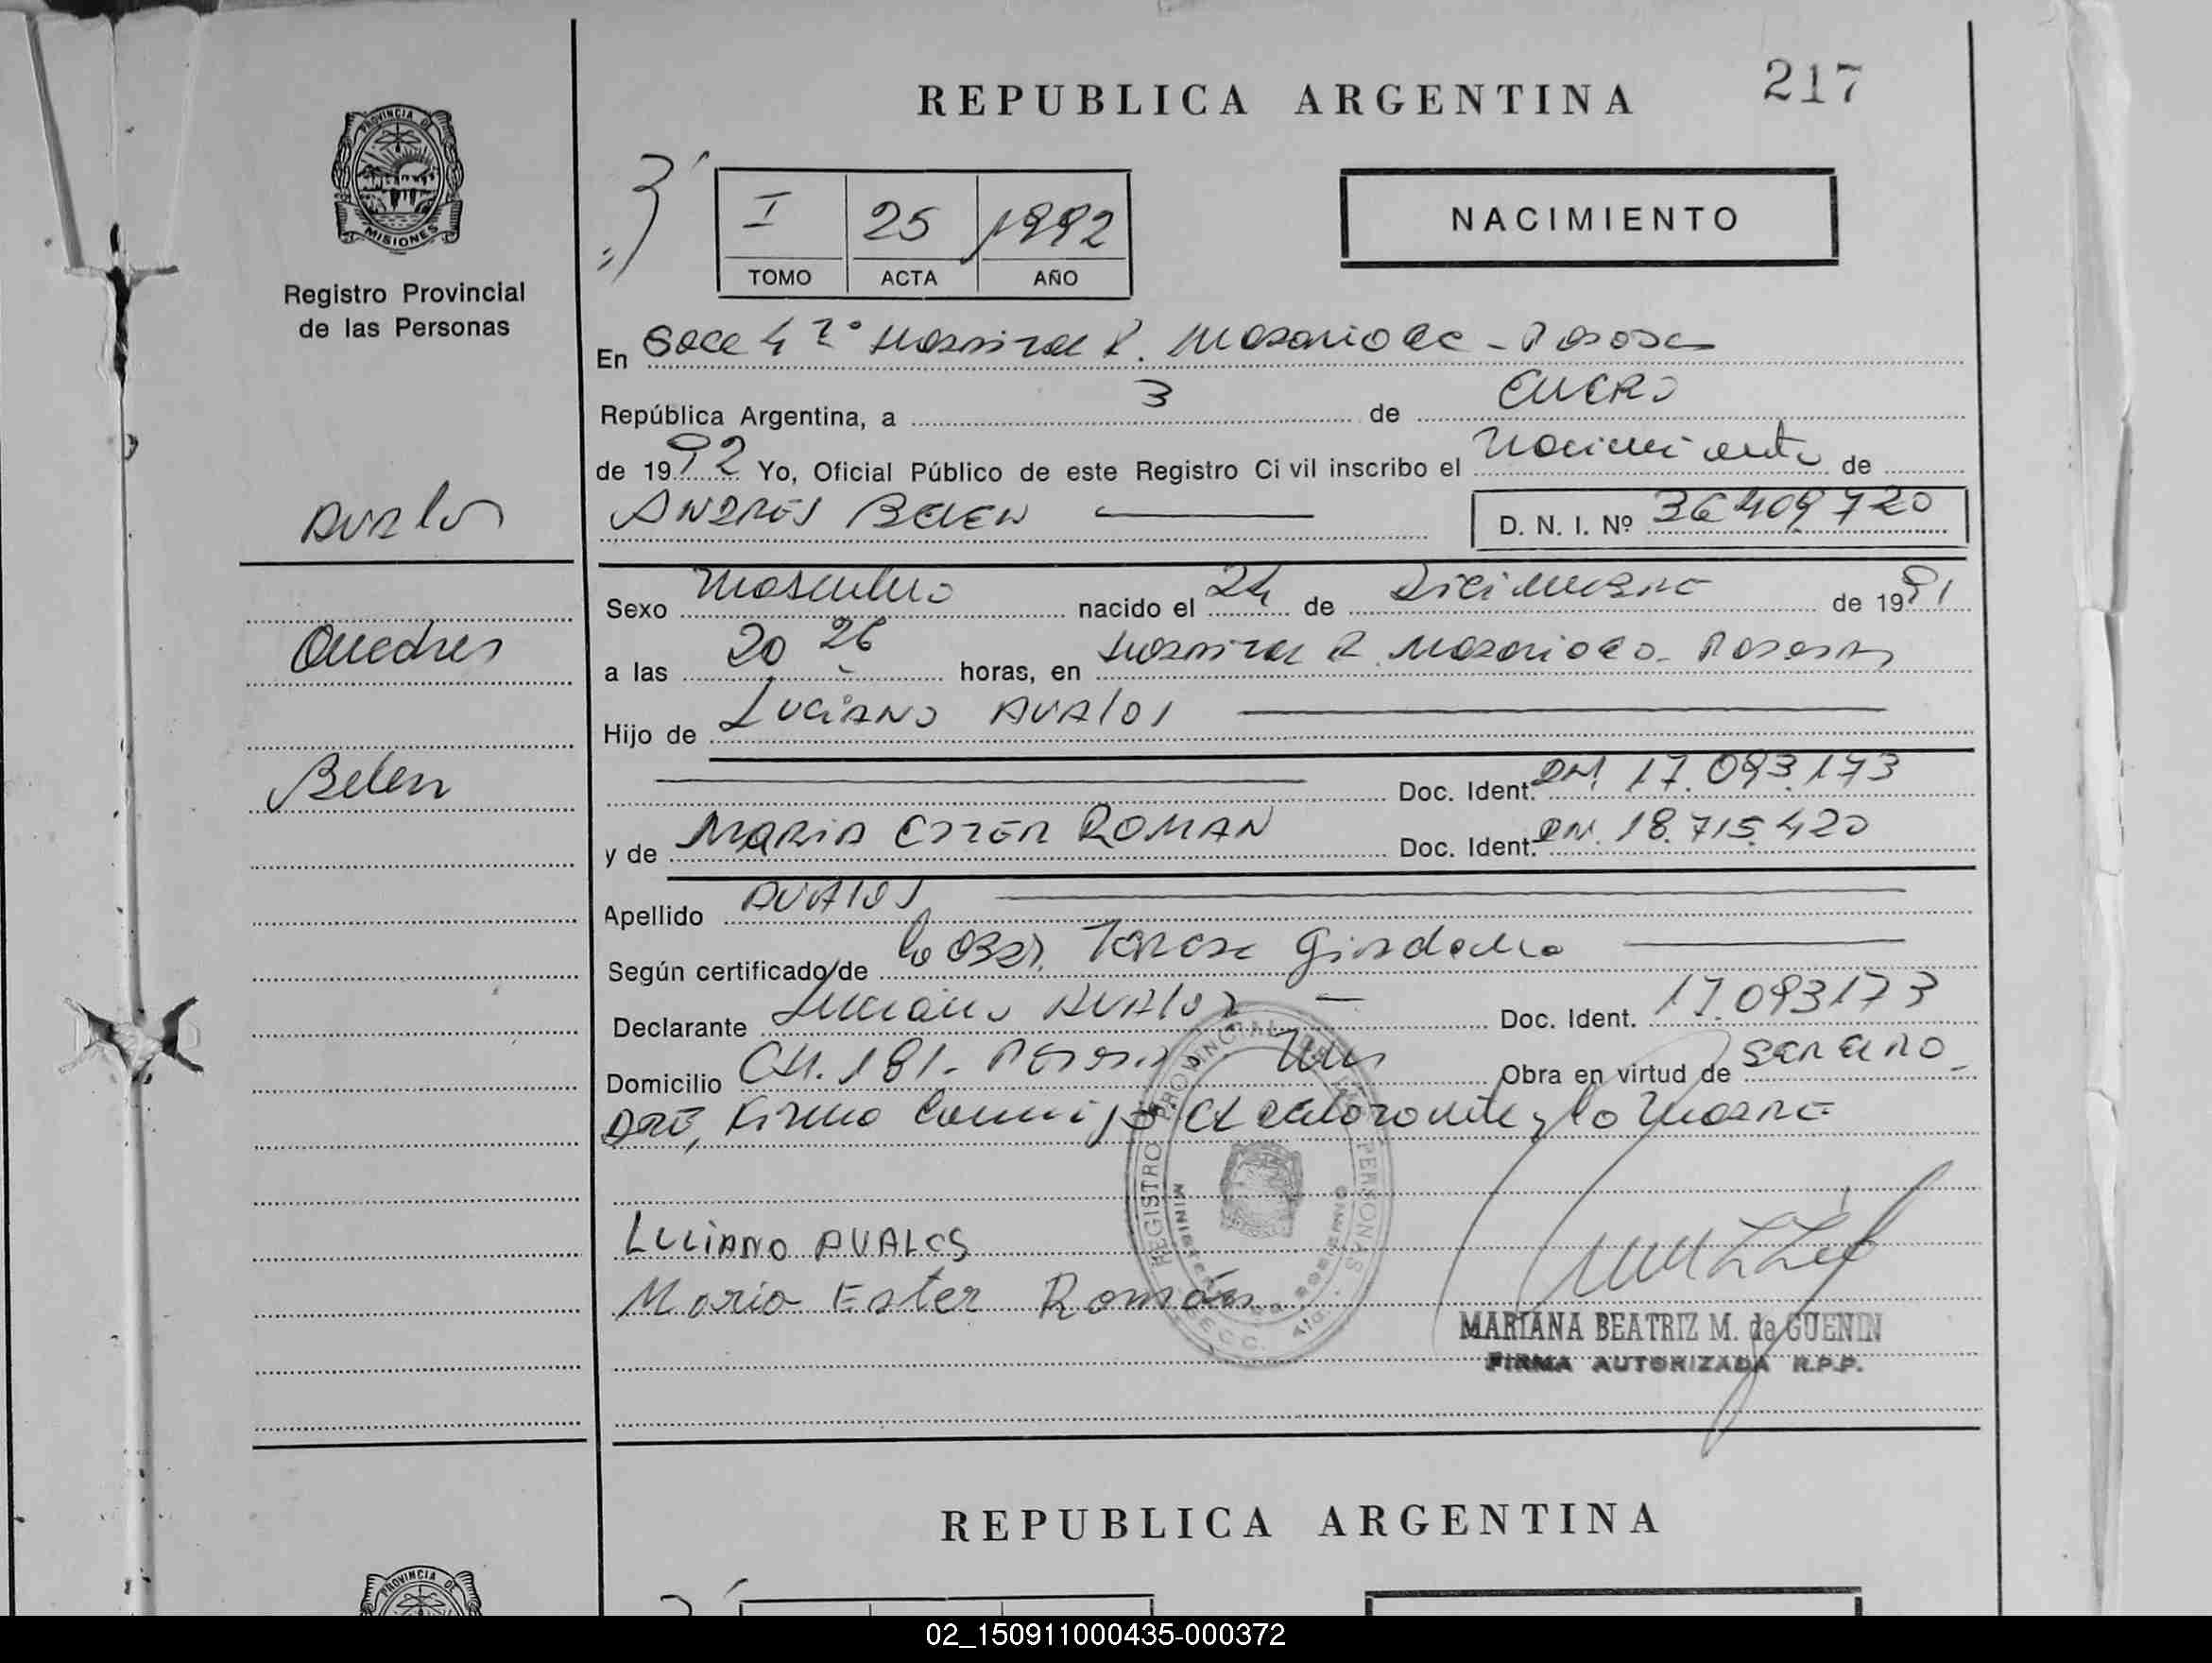 217
REPUBLICA ARGENTINA
PROVINCIA DE
MISIONES
Registro Provincial
de las Personas
I 25 1992
TOMO ACTA AÑO
NACIMIENTO
En
República Argentina, a 3 de ENERO
de 1992 Yo, Oficial Público de este Registro Civil inscribo el Nacimiento de
Avalos
ANDRES BELEN D. N. I. Nº 36409720
Sexo Masculino nacido el 24 de Diciembre de 1991
Andres
a las 20 26 horas, en Hospital R. Madariaga - Posadas
Hijo de Luciano AVAlos
Belen
Doc. Ident. DNI 17.093.173
y de MARIA ESTER ROMAN Doc. Ident. DNI. 18.715.420
Apellido AVAlos
Según certificado/de la Obst. Teresa
Declarante Luciano AVAlos Doc. Ident. 17.093173
Domicilio CH. 181. Posadas Mnes Obra en virtud de ser el PA
DRE, Firma conmigo el declarante y la Madre
LUCiANO AVALOS
Maria Ester Román
REGISTRO PROVINCIAL DE LAS PERSONAS
MINISTERIO DE GOBIERNO
SECC. 4ta.
MARIANA BEATRIZ M. de GUENIN
FIRMA AUTORIZADA R.P.P.
REPUBLICA ARGENTINA
PROVINCIA DE
02_150911000435-000372